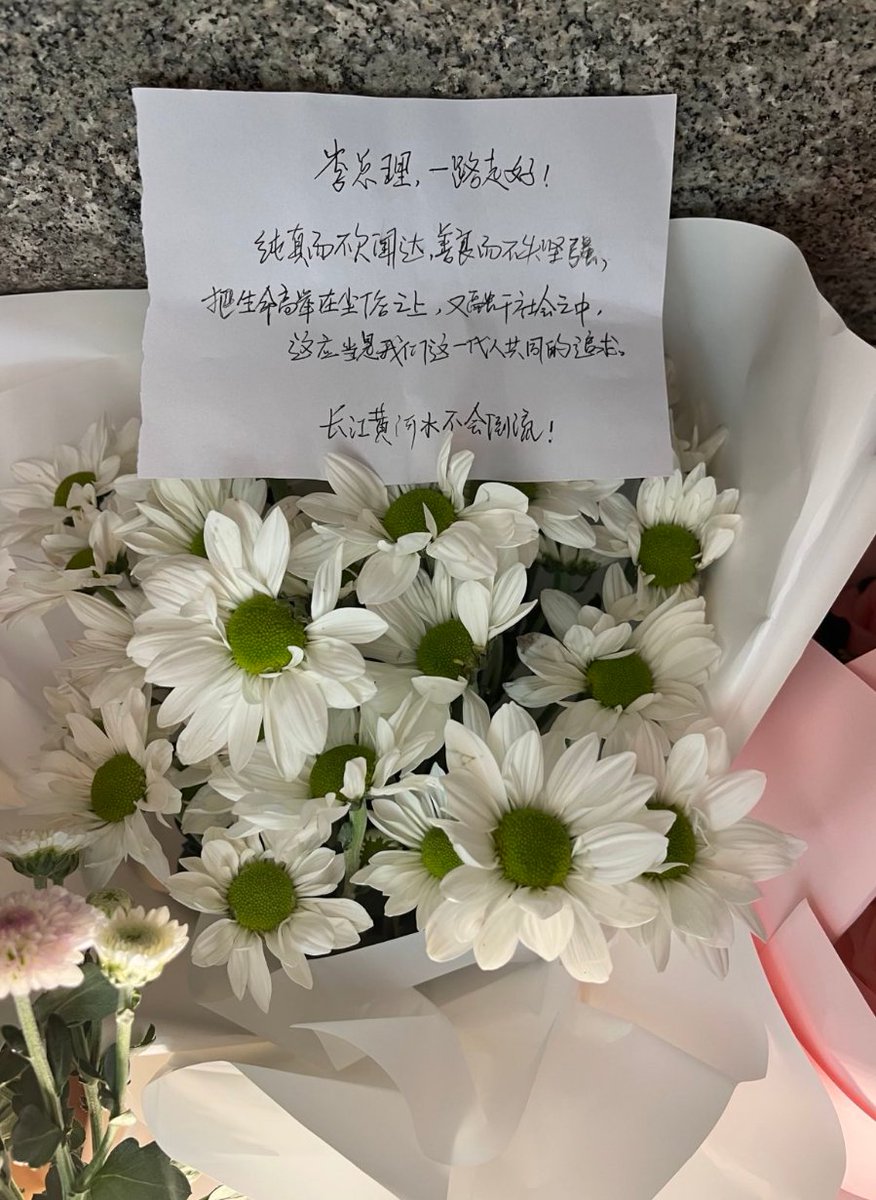 李总理，一路走好！
纯真而不欠闻达，善良而不失坚强，
把生命高举在尘俗之上，又融于社会之中，
这应当是我们这一代人共同的追求。
长江黄河水不会倒流！